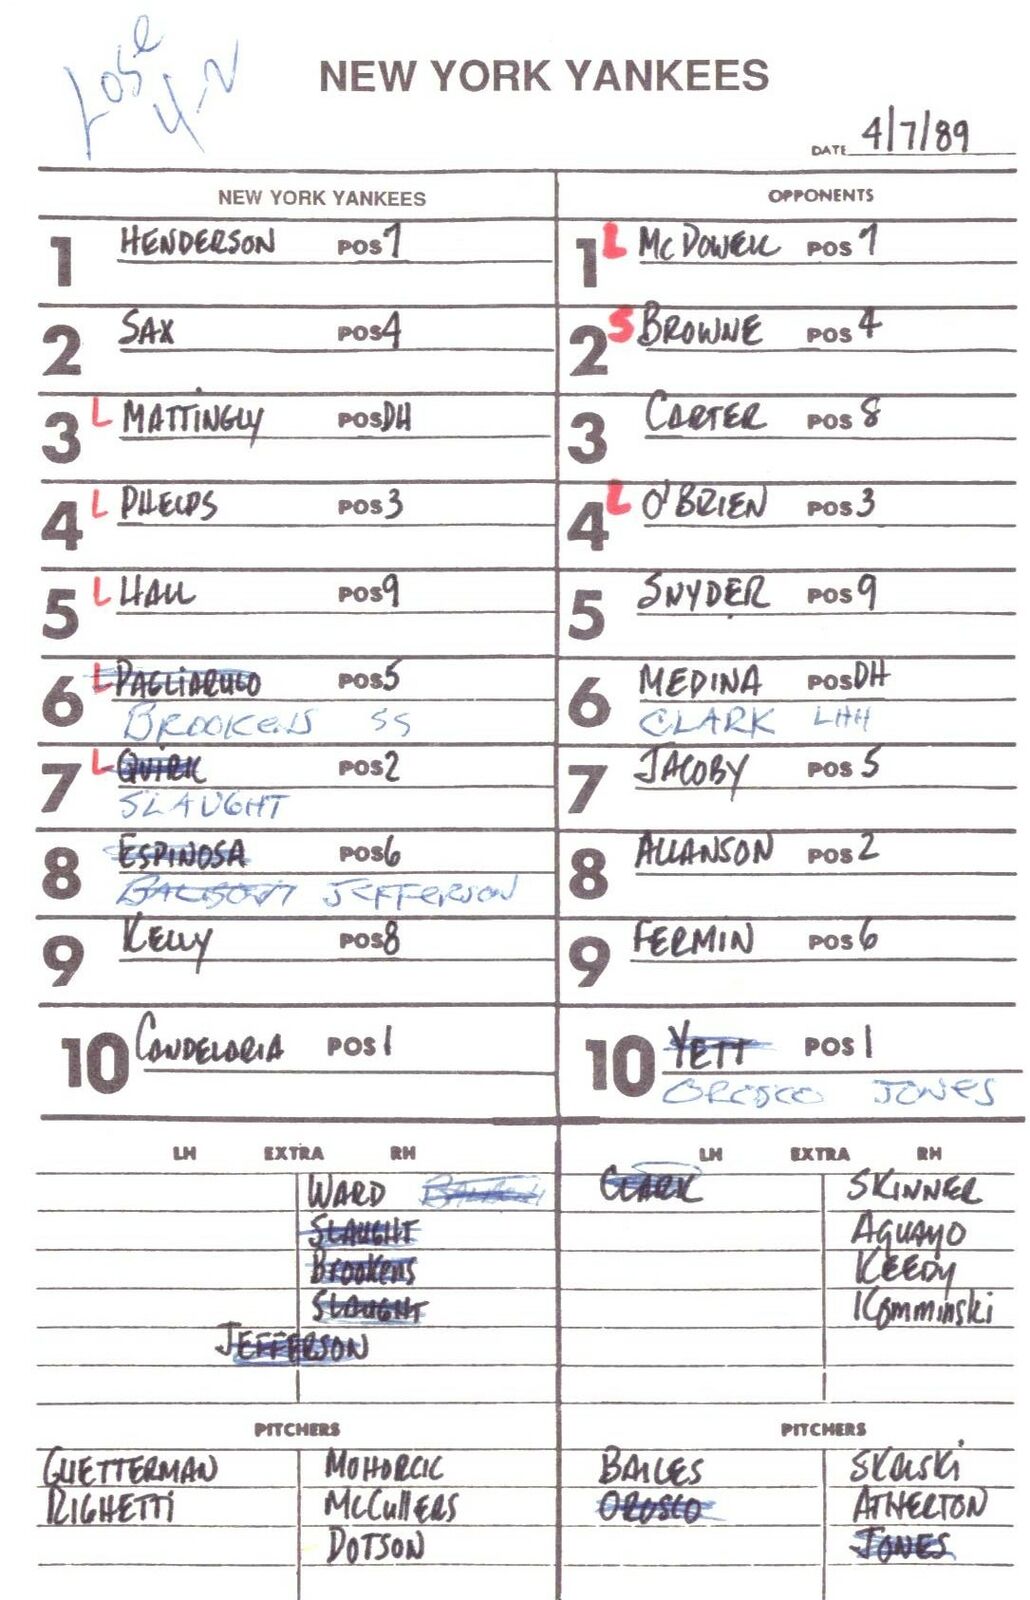 Lose
4-2
NEW YORK YANKEES
DATE 4/7/89
NEW YORK YANKEES
1 HENDERSON POS 7
2 SAX POS 4
3 L MATTINGLY POS DH
4 L PHELPS POS 3
5 L HALL POS 9
6 L PAGLIARULO POS 5
BROOKENS SS
7 L QUIRK POS 2
SLAUGHT
8 ESPINOSA POS 6
JEFFERSON
9 KELLY POS 8
10 CANDELARIA POS 1
OPPONENTS
1 L McDOWELL POS 7
2 S BROWNE POS 4
3 CARTER POS 8
4 L O'BRIEN POS 3
5 SNYDER POS 9
6 MEDINA POS DH
CLARK LHH
7 JACOBY POS 5
8 ALLANSON POS 2
9 FERMIN POS 6
10 YETT POS 1
OROSCO JONES
LH EXTRA RH
WARD
SLAUGHT
BROOKENS
SLAUGHT
JEFFERSON
LH EXTRA RH
CLARK SKINNER
AGUAYO
KEEDY
KOMMINSKI
PITCHERS
GUETTERMAN MOHORCIC
RIGHETTI McCULLERS
DOTSON
PITCHERS
BAILES SKALSKI
OROSCO ATHERTON
JONES